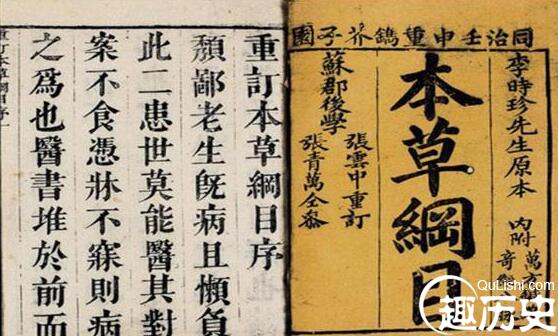 同治壬申重鐫芥子園
李時珍先生原本
內附
萬方
奇經
本草綱目
蘇郡後學
張雲中重訂
張青萬全參
重訂本草綱目序
頹鄙老生旣病且懶負
此二患世莫能醫其對
案不食憑牀不寐則病
之爲也醫書堆於前而
重訂本草綱目序
QuLishi.com
趣历史